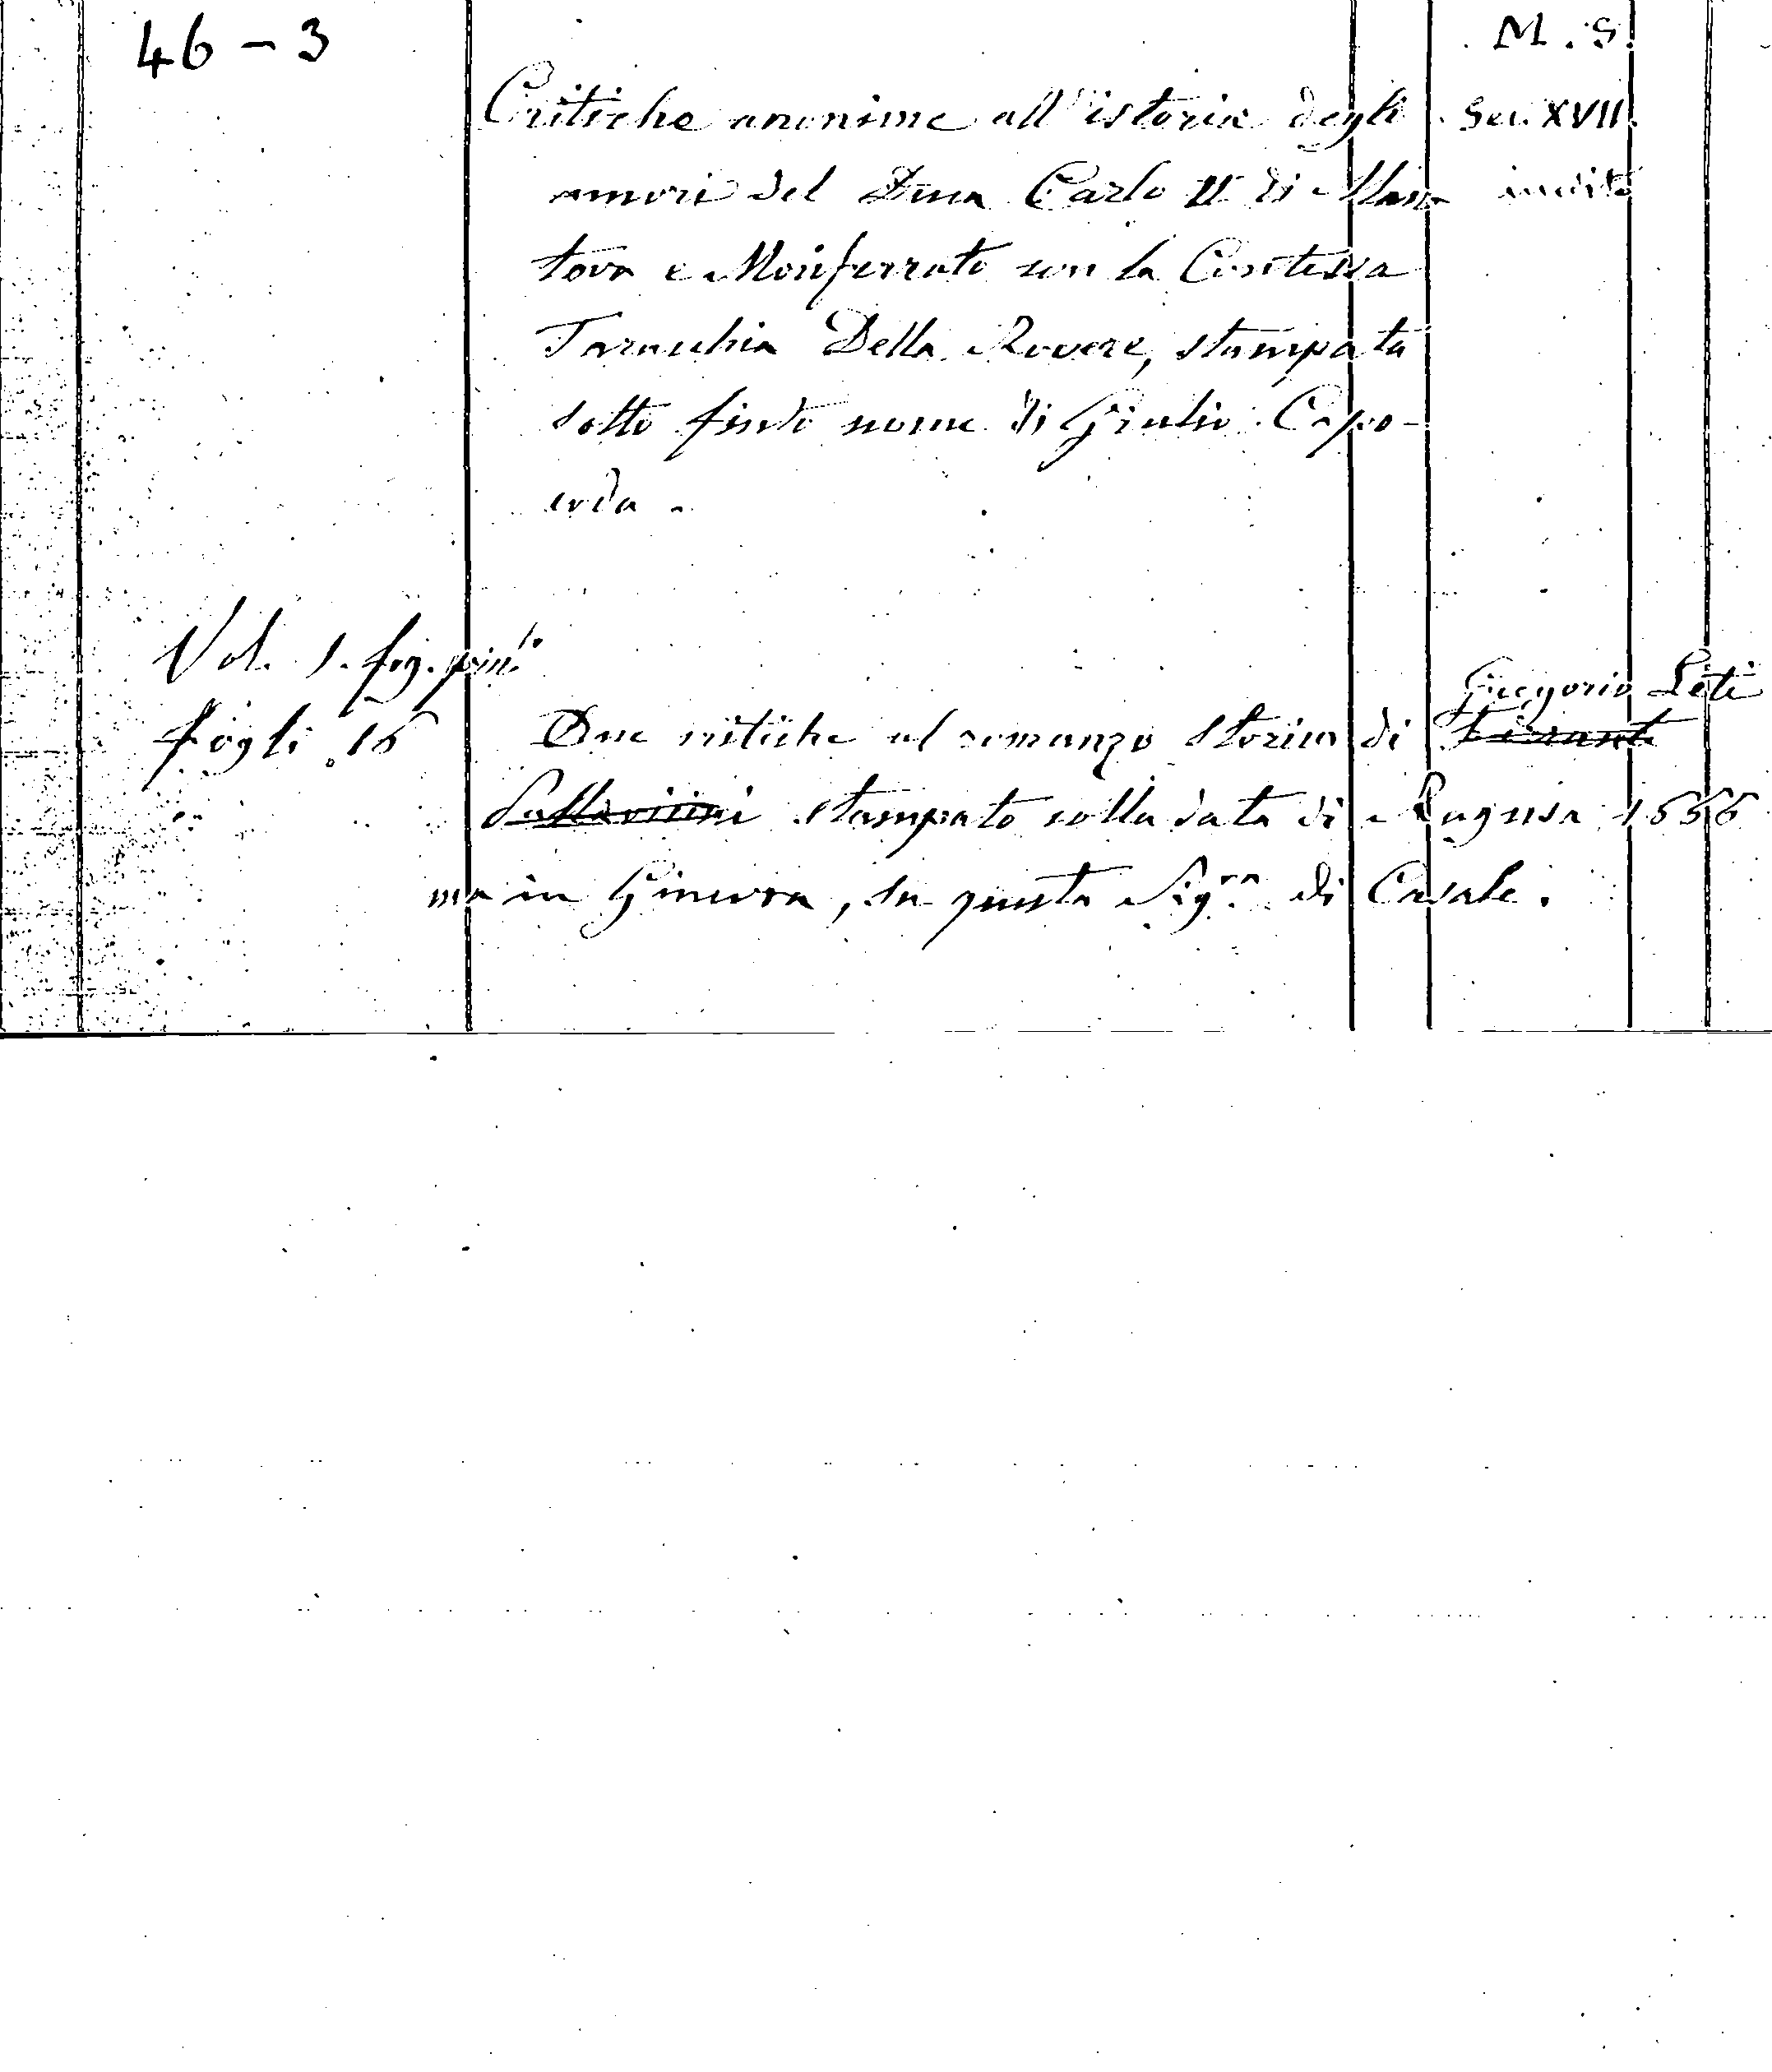 46 - 3
M. S.
Critiche anonime all'istoria degli
Sec. XVII.
amori del Duca Carlo II di Man-
inedito
tova e Monferrato con la Contessa
Taracchia Della Rovere, stampata
sotto finto nome di Giulio Capo-
coda.
Vol. 1. leg. 
fogli 16
Due critiche al romanzo storico di Gregorio Leti
stampato colla data di Ragusa 1666
ma in Ginevra, su questa Sig.ra di Casale.